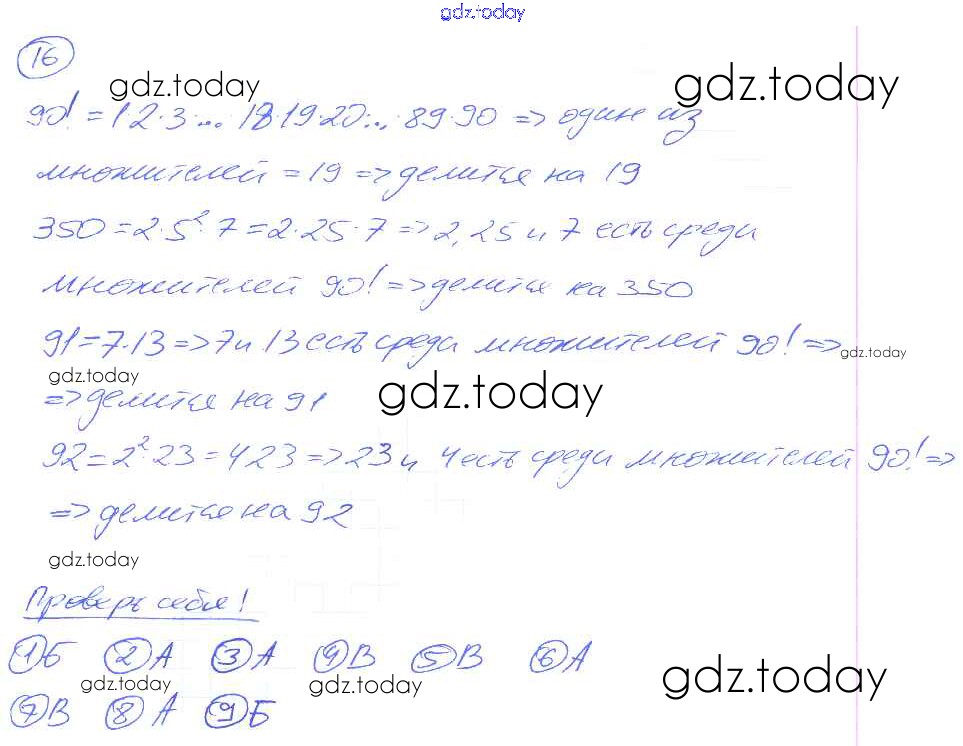 gdz.today
16
gdz.today gdz.today
90! = 1·2·3·... 18·19·20·... 89·90 => один из
множителей = 19 => делится на 19
350 = 2·5²·7 = 2·25·7 => 2, 25 и 7 есть среди
множителей 90! => делится на 350
91 = 7·13 => 7 и 13 есть среди множителей 90! =>
gdz.today
gdz.today gdz.today
=> делится на 91
92 = 2²·23 = 4·23 => 23 и 4 есть среди множителей 90! =>
=> делится на 92
gdz.today
Проверь себя!
1 Б 2 А 3 А 4 В 5 В 6 А
gdz.today gdz.today gdz.today
7 В 8 А 9 Б